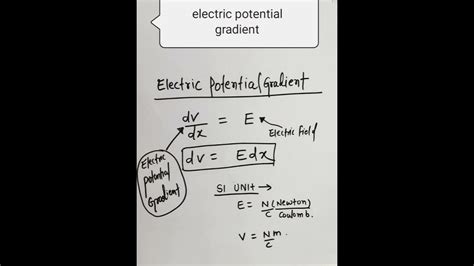 electric potential
gradient
Electric Potential Gradient
dv/dx = E
Electric Field
dv = Edx
Electric
Potential
Gradient
SI UNIT →
E = N/C (Newton)/Coulomb.
V = Nm/C.